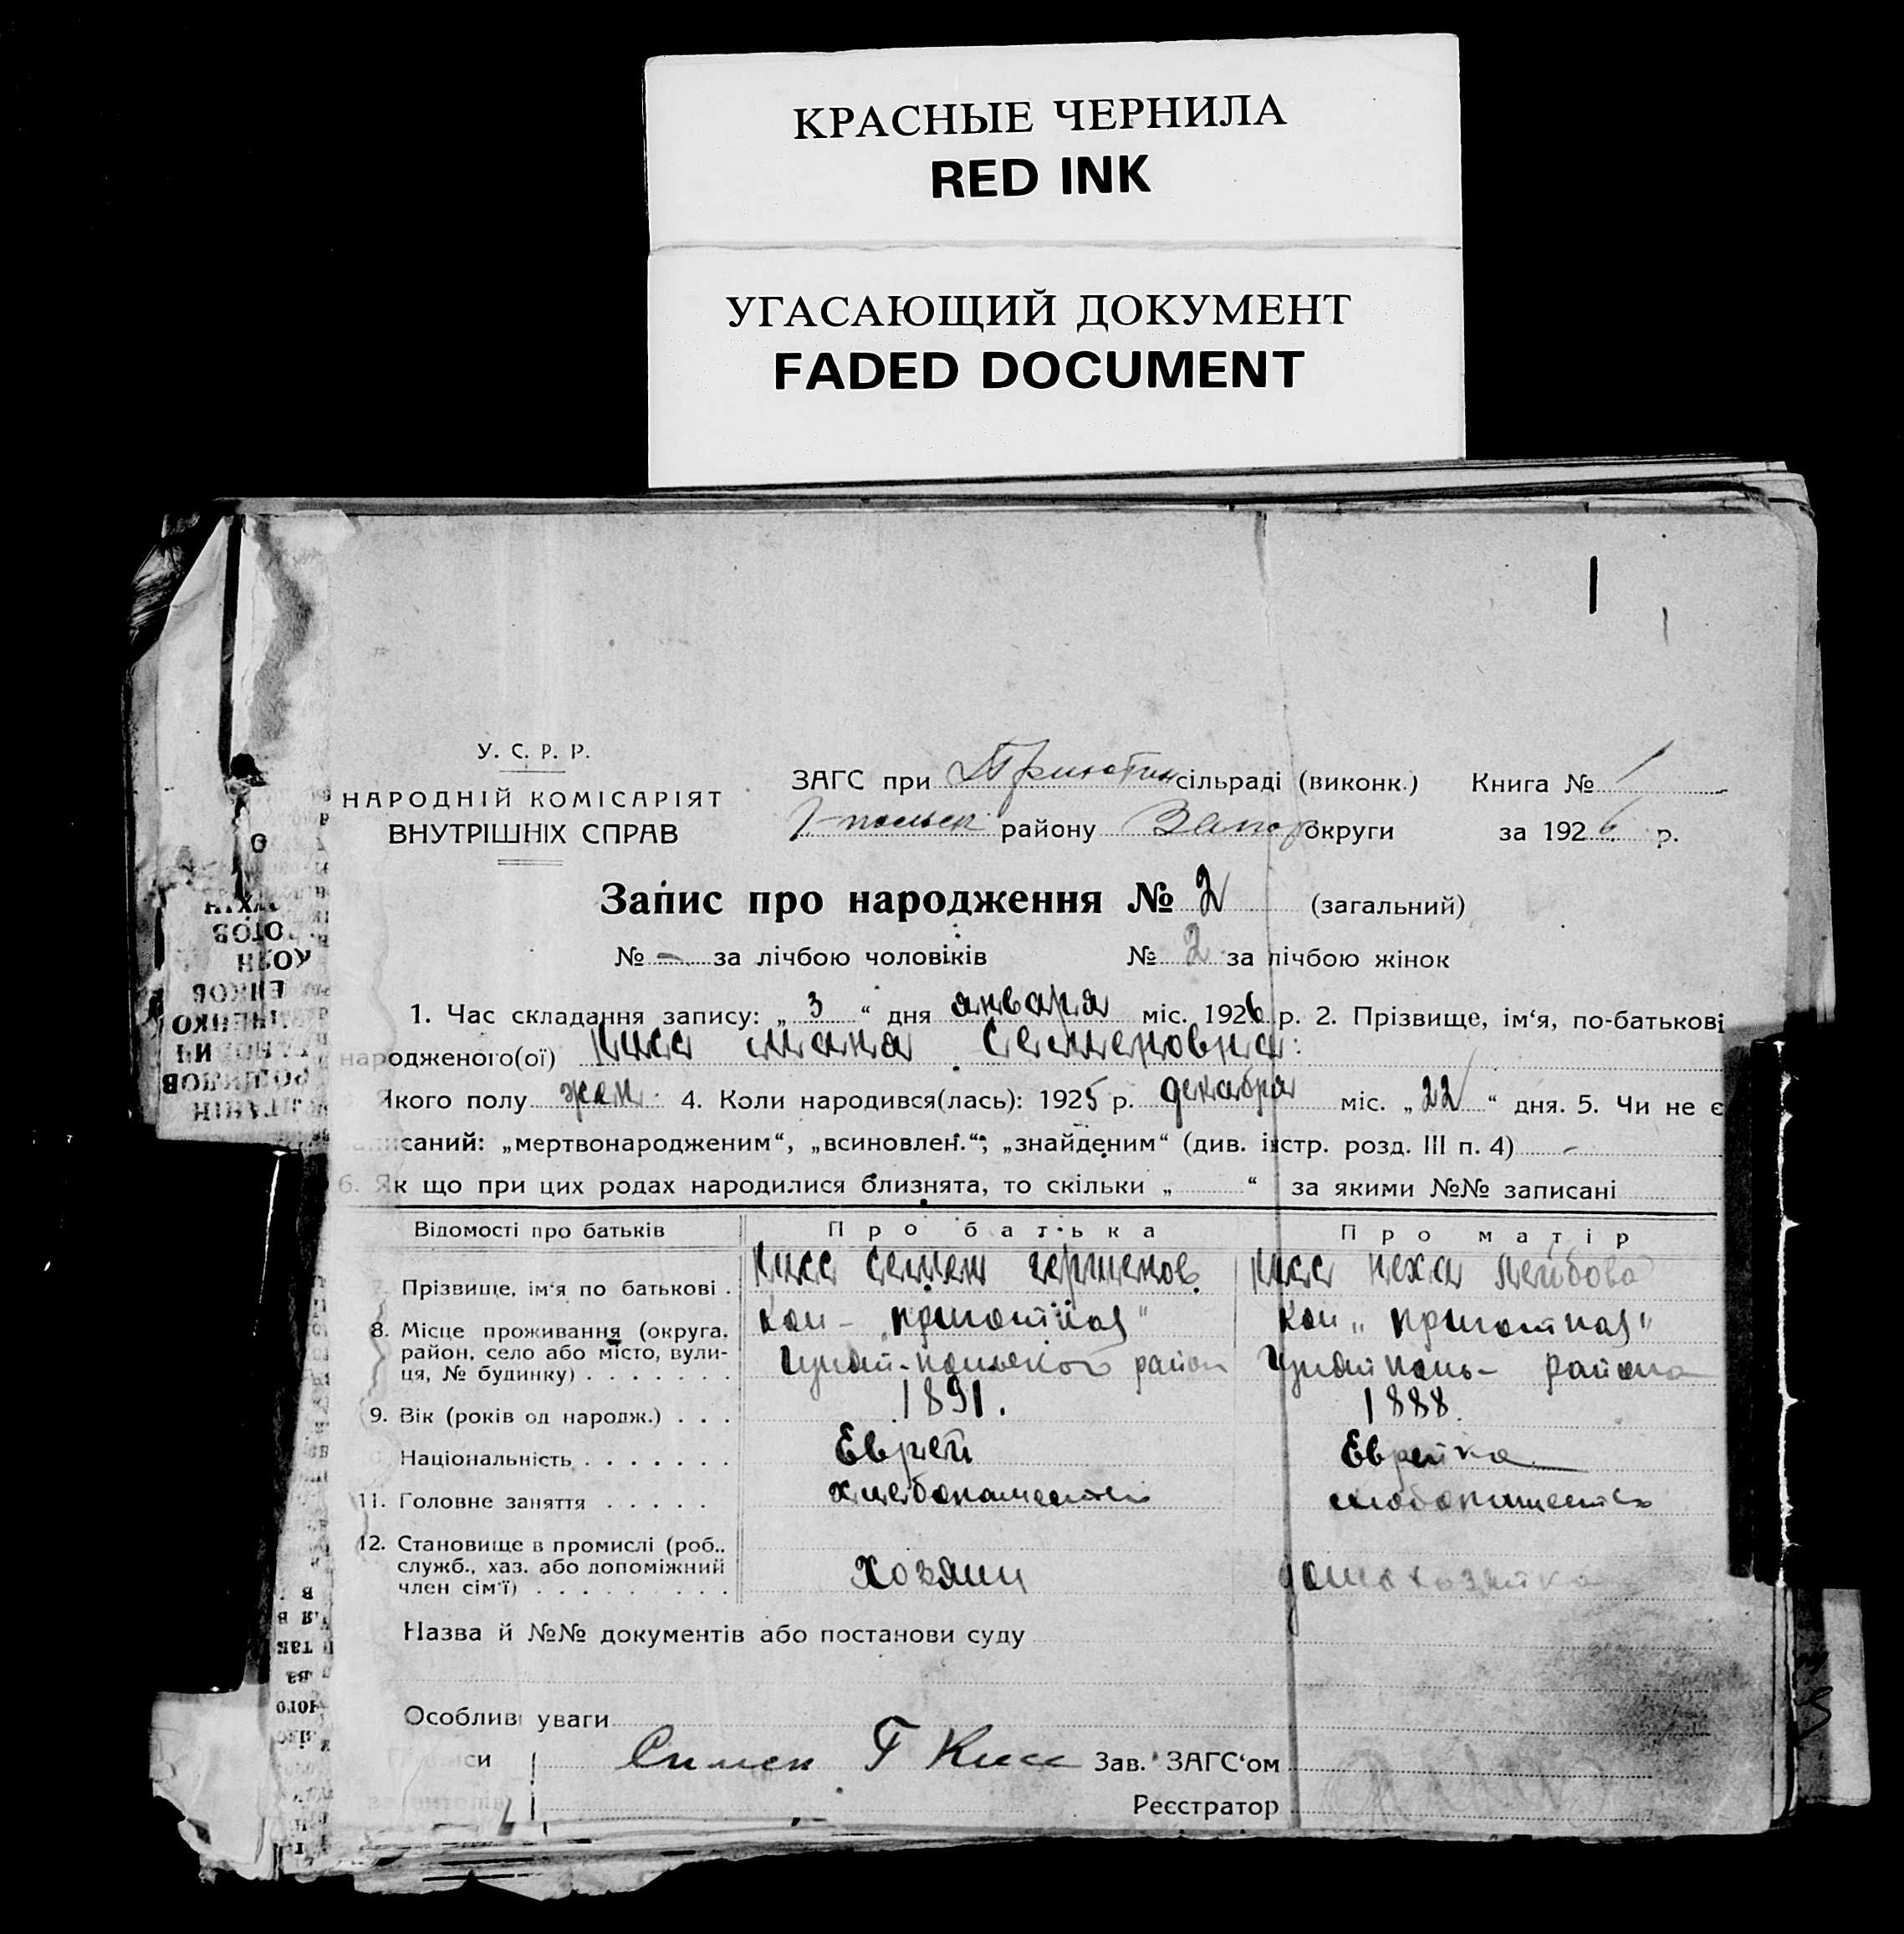 КРАСНЫЕ ЧЕРНИЛА
RED INK
УГАСАЮЩИЙ ДОКУМЕНТ
FADED DOCUMENT
У. С. Р. Р.
НАРОДНІЙ КОМІСАРІЯТ
ВНУТРІШНІХ СПРАВ
ЗАГС при Приютин сільраді (виконк.) Книга № 1
Г-польск району Запор округи за 1926 р.
Запис про народження № 2 (загальний)
№ - за лічбою чоловіків № 2 за лічбою жінок
1. Час складання запису: „ 3 “ дня января міс. 1926 р. 2. Прізвище, ім‘я, по-батькові
народженого(ої) Кисс Маня Семеновна
Якого полу жен. 4. Коли народився(лась): 1925 р. декабря міс. „ 22 “ дня. 5. Чи не є
записаний: „мертвонародженим“, „всиновлен.“; „знайденим“ (див. інстр. розд. III п. 4) -
6. Як що при цих родах народилися близнята, то скільки „ “ за якими №№ записані
Відомості про батьків Про батька Про матір
Прізвище, ім‘я по батькові . Кисс Семен Гершенов. Кисс Неха Лейбова
8. Місце проживання (округа, район, село або місто, вулиця, № будинку) . . . . . . .
Кол - „Приютная“ Кол „Приютная“
Гуляй-польского район Гуляйполь- района
9. Вік (років од народж.) . . . 1891. 1888.
Національність . . . . . . . Еврей Еврейка
11. Головне заняття . . . . . хлебопашество хлебопашество
12. Становище в промислі (роб.. служб., хаз. або допоміжний член сім‘ї) . . . . . . . . . Хозяин домохозяйка
Назва й №№ документів або постанови суду
Особливі уваги
Симен Г Кисс Зав. ЗАГС‘ом
Реєстратор